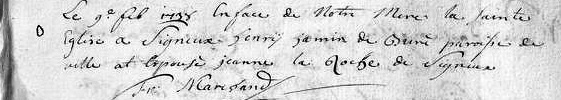 Le 9e feb 1738 En face de Notre Mere la sainte
Eglise a Signeux henry jamin de Gune paroisse de
ville at Epousé jeanne la Roche de Signeux
Fr: Marchand